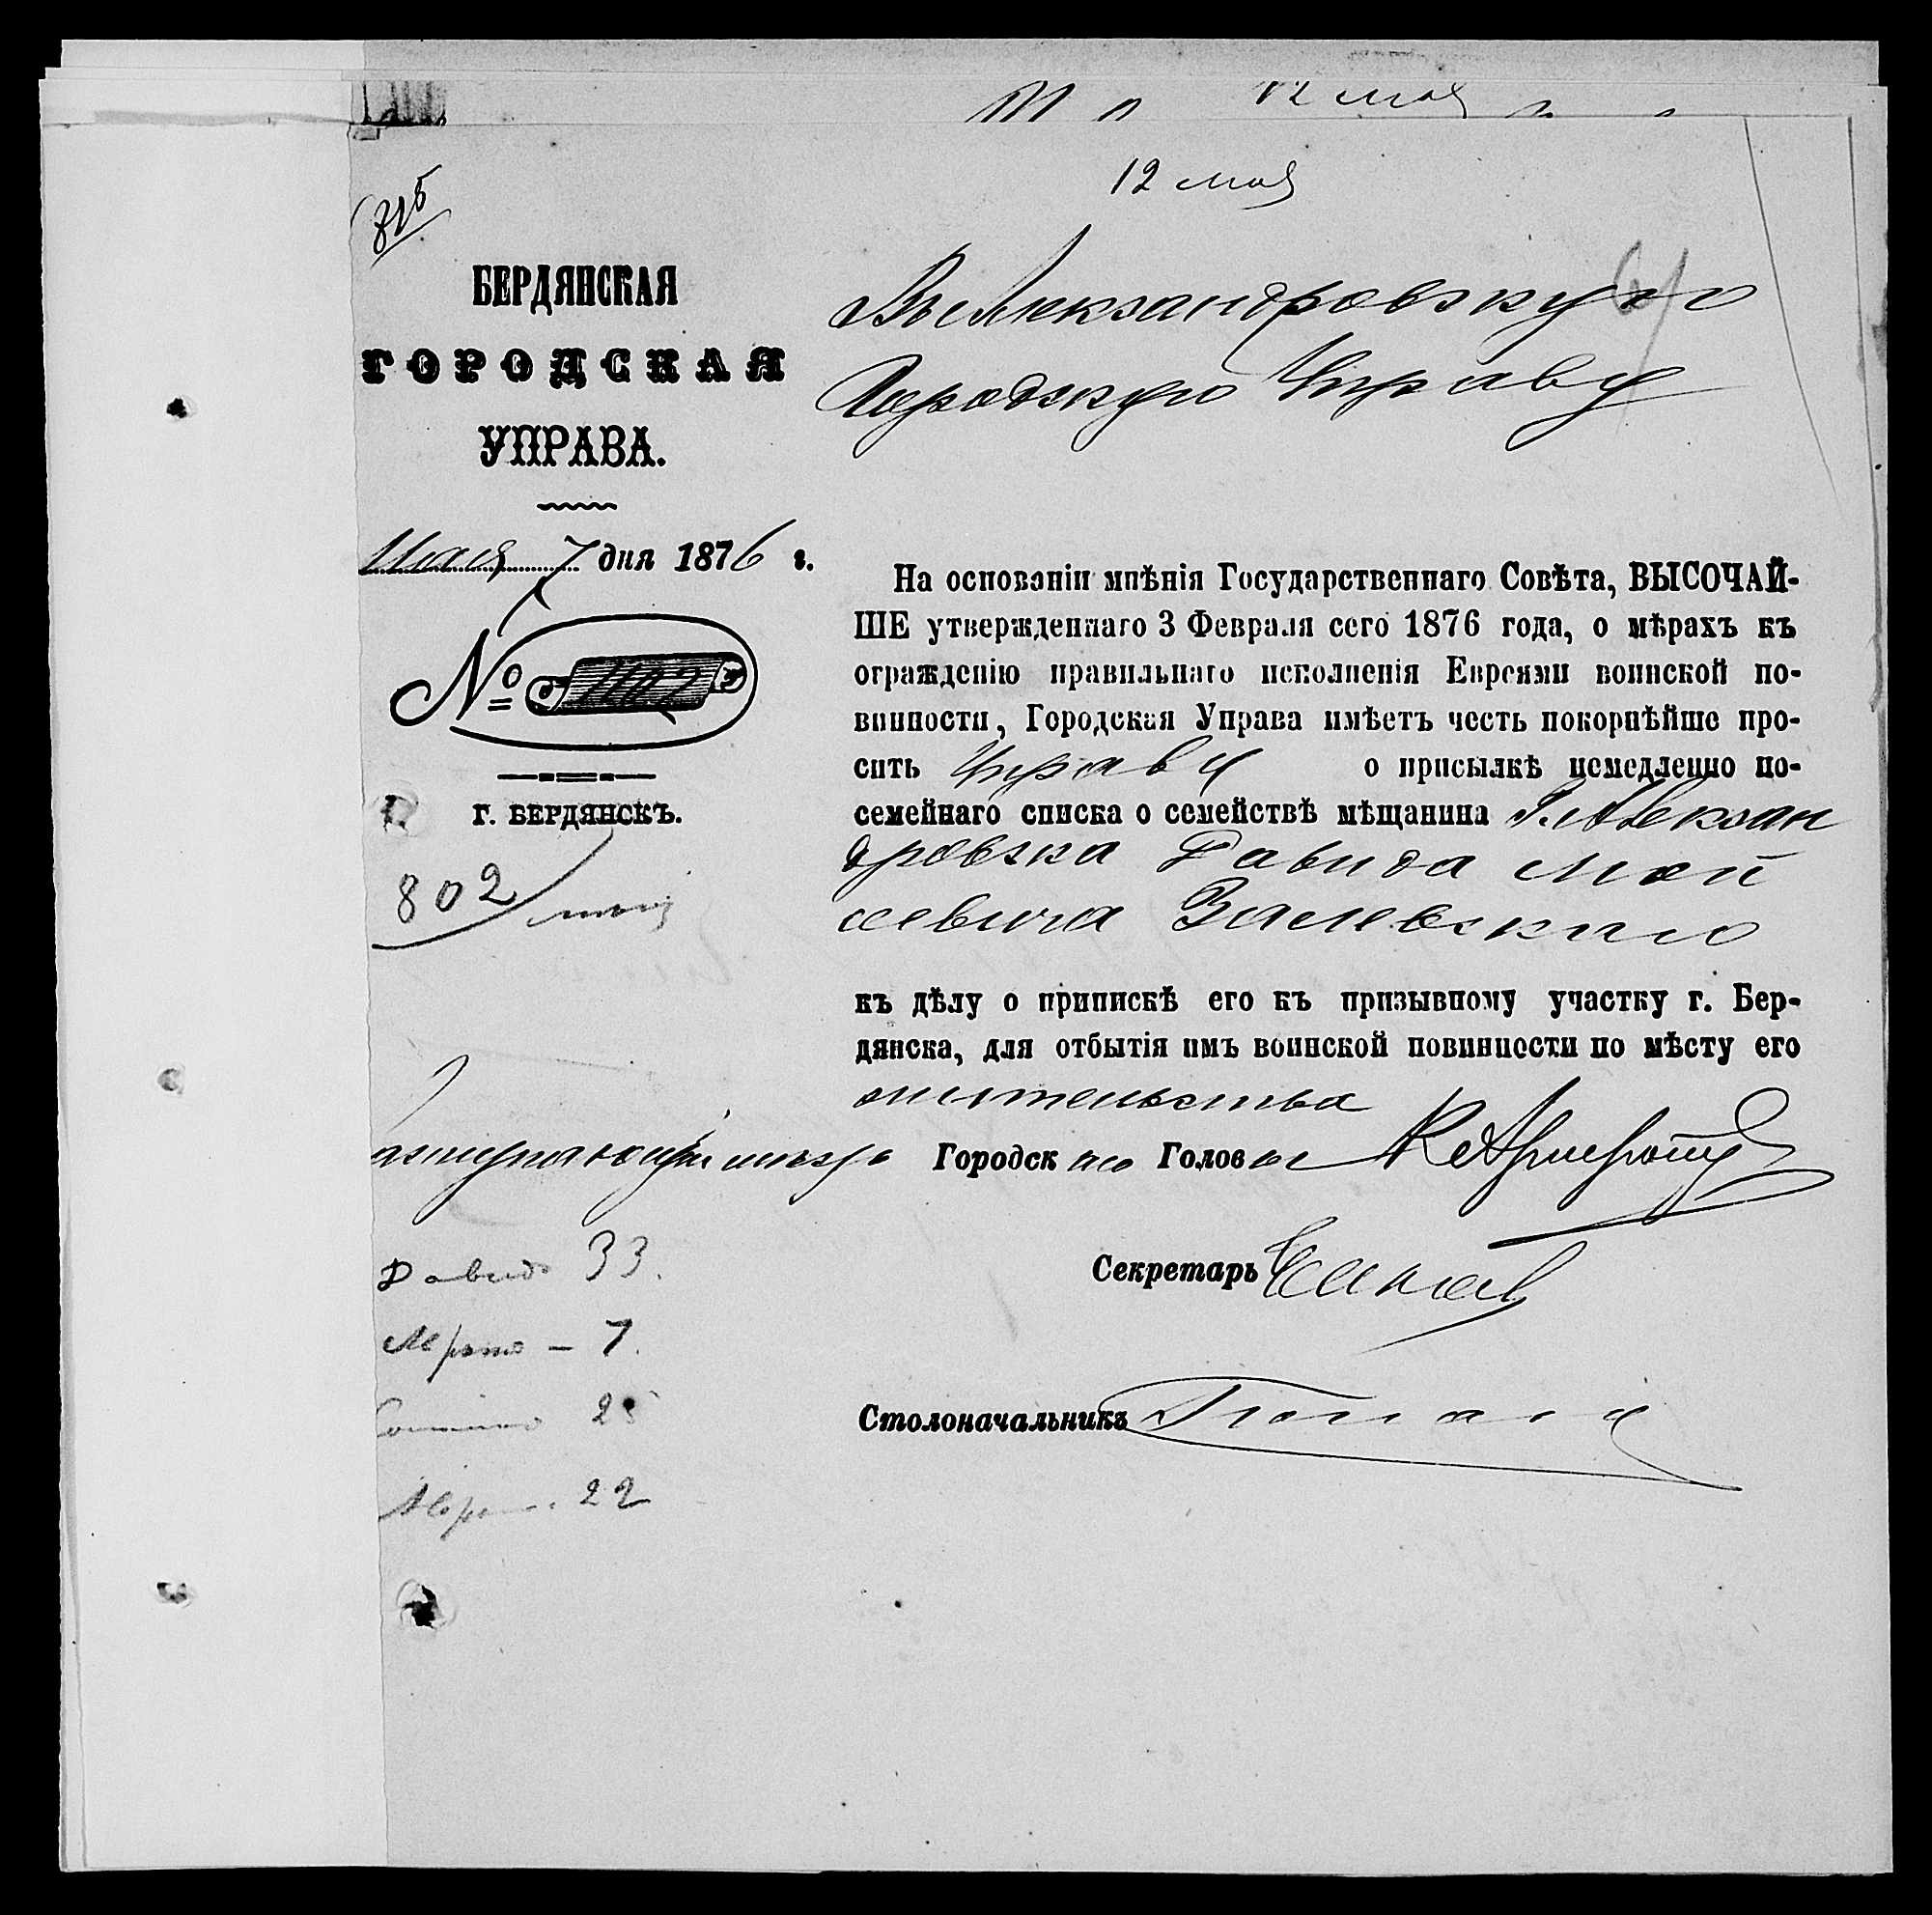 12 мая
12 мая
БЕРДЯНСКАЯ
ГОРОДСКАЯ
УПРАВА.
Мая 7 дня 1876 г.
№ 1102
Г. БЕРДЯНСКЪ.
802
Въ Александровскую
Городскую Управу
На основаніи мнѣнія Государственнаго Совѣта, ВЫСОЧАЙ-
ШЕ утвержденнаго 3 Февраля сего 1876 года, о мѣрахъ къ
огражденію правильнаго исполненія Евреями воинской по-
винности, Городская Управа имѣетъ честь покорнѣйше про-
сить Управу о присылкѣ немедленно по-
семейнаго списка о семействѣ мѣщанина г. Алексан
дровска Давида Мой
сеевича Залевскаго
къ дѣлу о припискѣ его къ призывному участку г. Бер-
дянска, для отбытія имъ воинской повинности по мѣсту его
жительства
Заступающій мѣсто Городскаго Головы
Секретарь
Столоначальникъ
Давидъ 33.
Абрамъ – 7.
22